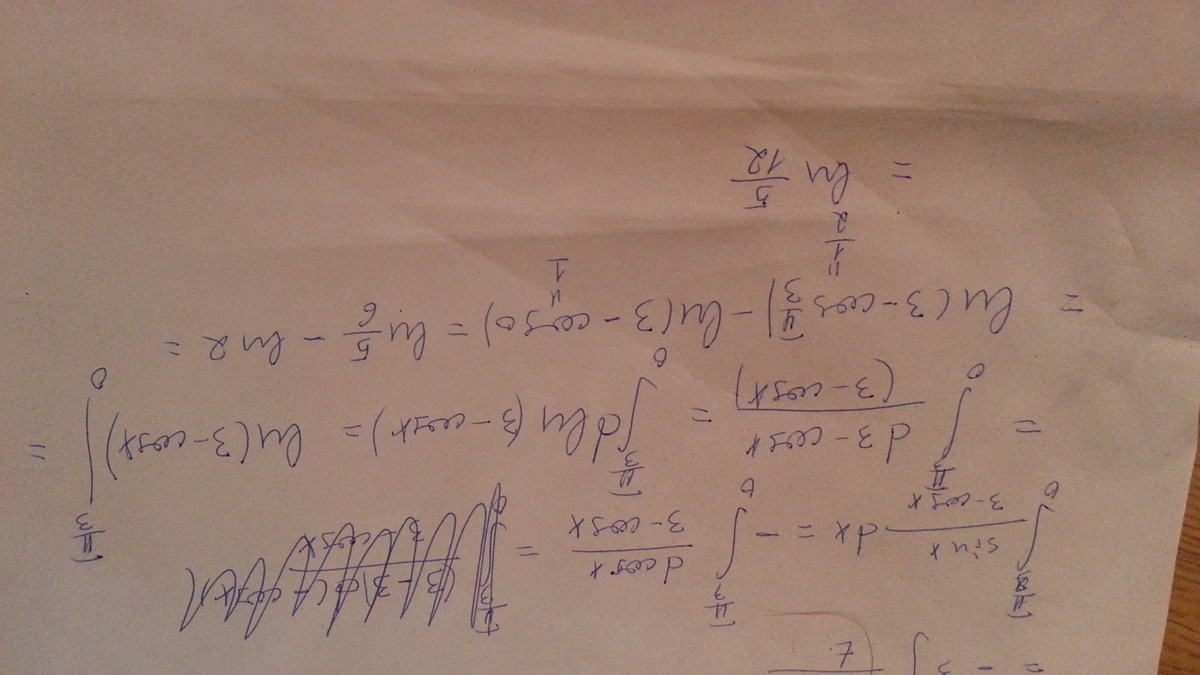 = - 3 ∫ t
∫₀^{π/3} sin x / (3 - cos x) dx = - ∫₀^{π/3} d cos x / (3 - cos x) =
= ∫₀^{π/3} d 3 - cos x / (3 - cos x) = ∫₀^{π/3} d ln (3 - cos x) = ln (3 - cos x) |₀^{π/3} =
= ln (3 - cos π/3) - ln (3 - cos 0) = ln 5/6 - ln 2 =
" 1/2 " 1
= ln 5/12